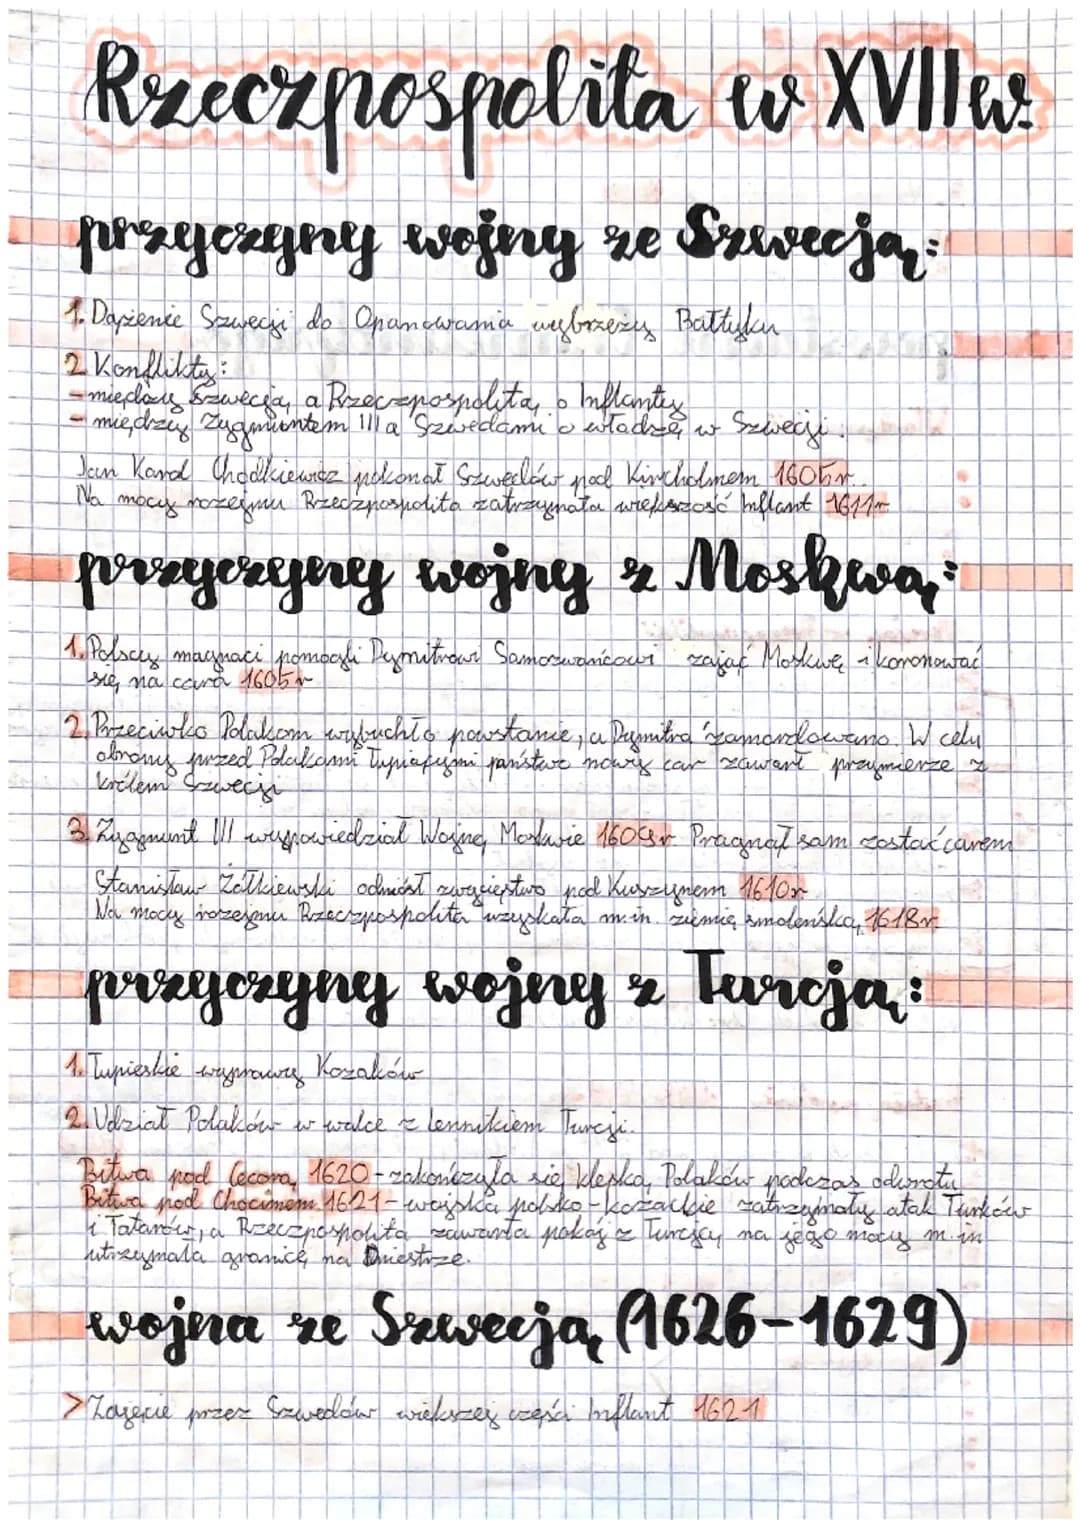 Rzeczpospolita w XVII w.
przyczyny wojny ze Szwecją:
1. Dążenie Szwecji do Opanowania wybrzeży Bałtyku
2. Konflikty:
- między Szwecją, a Rzeczpospolitą, o Inflanty
- między Zygmuntem III a Szwedami o władzę w Szwecji.
Jan Karol Chodkiewicz pokonał Szwedów pod Kircholmem 1605r.
Na mocy rozejmu Rzeczpospolita zatrzymała większość Inflant 1611r
przyczyny wojny z Moskwą:
1. Polscy magnaci pomogli Dymitrowi Samozwańcowi zająć Moskwę i koronować
się, na cara 1605r
2. Przeciwko Polakom wybuchło powstanie, a Dymitra zamordowano. W celu
obrony przed Polakami łupiącymi państwo nowy car zawarł przymierze z
królem Szwecji
3. Zygmunt III wypowiedział Wojnę, Moskwie 1609r Pragnął sam zostać carem
Stanisław Żółkiewski odniósł zwycięstwo pod Kłuszynem 1610r
Na mocy rozejmu Rzeczpospolita uzyskała m.in. ziemię smoleńską, 1618r.
przyczyny wojny z Turcją:
1. Łupieskie wyprawy Kozaków
2. Udział Polaków w walce z lennikiem Turcji.
Bitwa pod Cecorą 1620 - zakończyła się klęską Polaków podczas odwrotu
Bitwa pod Chocimem 1621 - wojska polsko-kozackie zatrzymały atak Turków
i Tatarów, a Rzeczpospolita zawarła pokój z Turcją, na jego mocy m.in
utrzymała granicę na Dniestrze.
wojna ze Szwecją (1626-1629)
> Zajęcie przez Szwedów większej części Inflant 1621